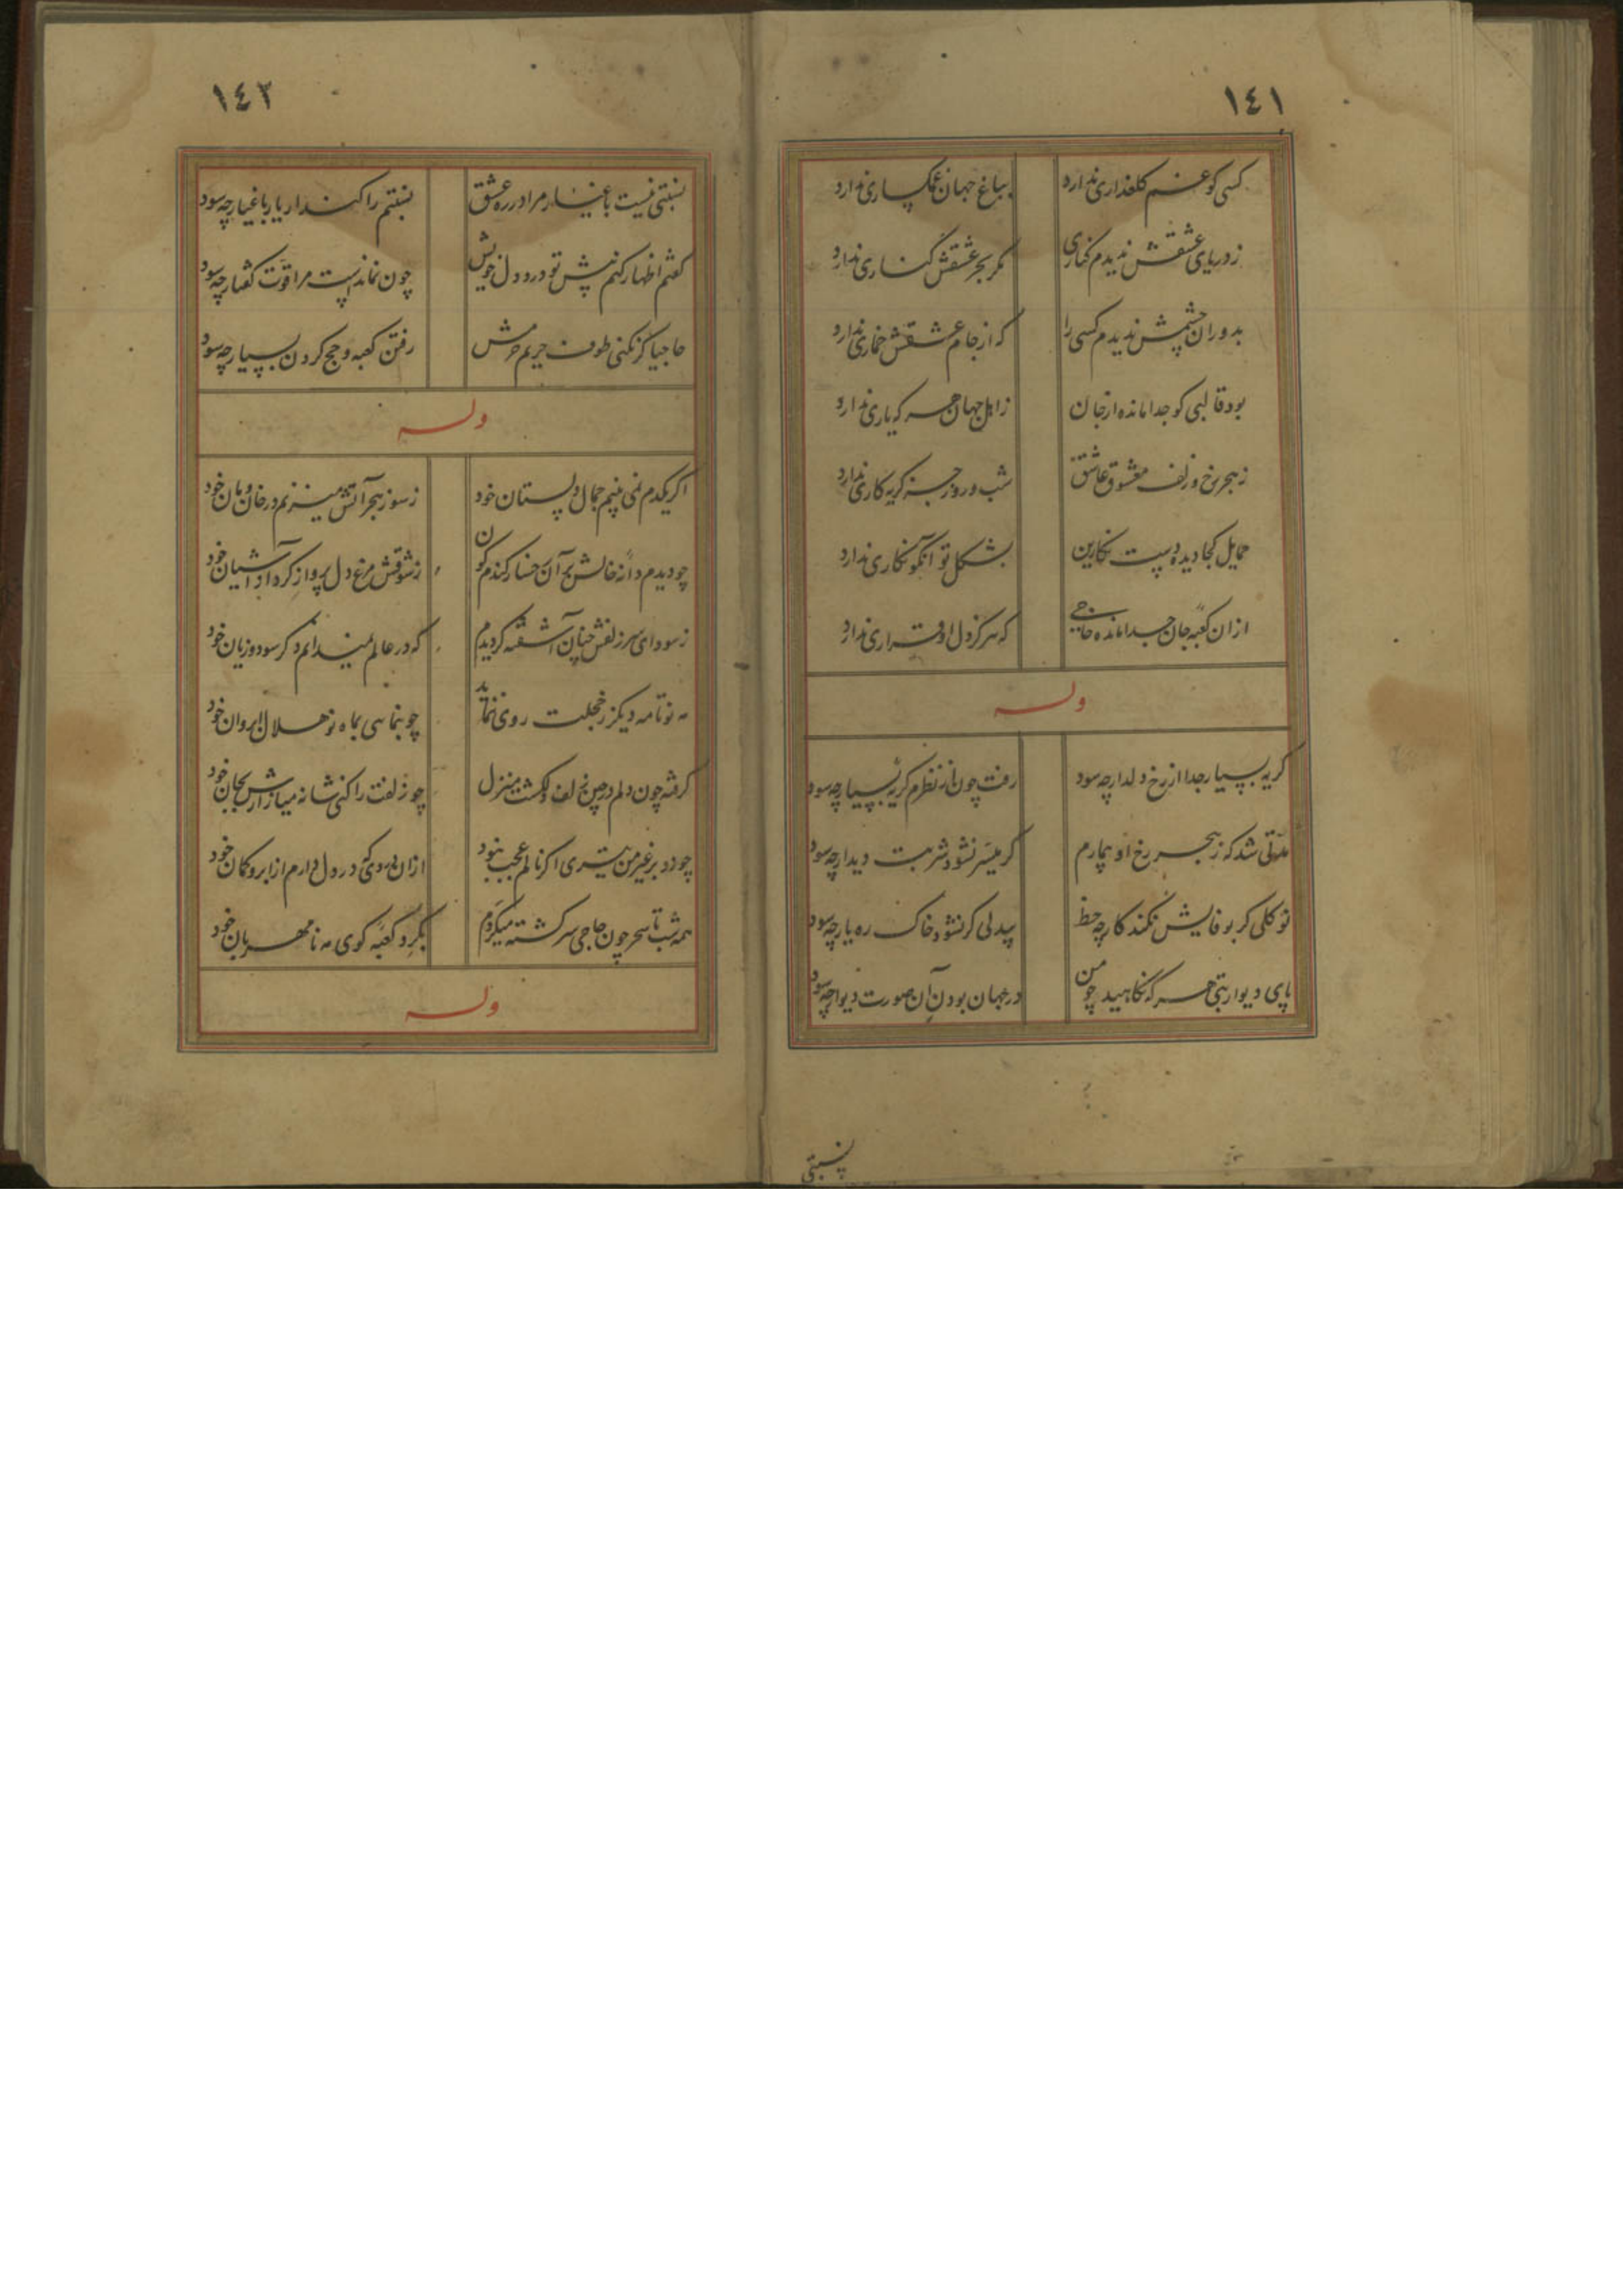 ١٤١
کسی کو غم کلعذاری ندارد
بباغ جهان غمکساری ندارد
ز دریای عشقش ندیدم کناری
مکر بحر عشقش کناری ندارد
بدوران چشمش ندیدم کسی را
که از جام عشقش خماری ندارد
بود قالبی کو جدا مانده از جان
ز اهل جهان هر که یاری ندارد
ز هجر رخ و زلف معشوق عاشق
شب و روز جز کریه کاری ندارد
حمایل کجا دیده دست نکارین
بشکل تو آنکو نکاری ندارد
ازان کعبه جان جدا مانده حاجی
که هرکز دل او قراری ندارد
وله
کریه بسیار جدا از رخ دلدار چه سود
رفت چون از نظرم کریه بسیار چه سود
مدتی شد که ز هجر رخ او بیمارم
کر میسر نشود شربت دیدار چه سود
تو کلی کر بوفایش نکند کار چه حظ
بیدلی کر نشود خاک ره یار چه سود
پای دیوار بتی هر که نکاهید چو من
در جهان بودن آن صورت دیوار چه سود
نسبتی
١٤٢
نسبتی نیست باغیار مرا در ره عشق
نسبتم را کند ار یار باغیار چه سود
کفتم اظهار کنم پیش تو درد دل خویش
چون نماندست مرا قوت کفتار چه سود
حاجیا کر نکنی طوف حریم حرمش
رفتن کعبه و حج کردن بسیار چه سود
وله
اکر یکدم نمی بینم جمال دلستان خود
ز سوز هجر آتش میزنم در خان و مان خود
چو دیدم دانه خالش بر آن رخسار کندم کون
ز شوقش مرغ دل پرواز کرد از آشیان خود
ز سودای سر زلفش چنان آشفته کردیدم
که در عالم نمیدانم دکر سود و زیان خود
مه نو تا مه دیکر ز خجلت روی ننماید
چو بنمایی بماه نو هلال ابروان خود
کرفته چون دلم در چین زلف دلکشت منزل
چو زلفت را کنی شانه میازارش بجان خود
چو زد بر غیر من تیری اکر نالم عجب نبود
ازان دردی که در دل دارم از ابرو کمان خود
همه شب تا سحر چون حاجی سرکشته میکردم
بکرد کعبه کوی مه نامهربان خود
وله